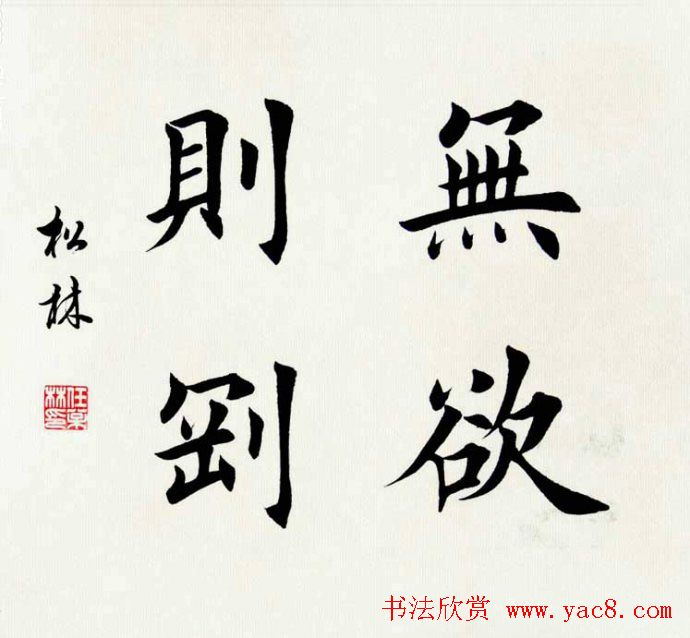 無欲
則剛
松林
任松林印
书法欣赏 www.yac8.com